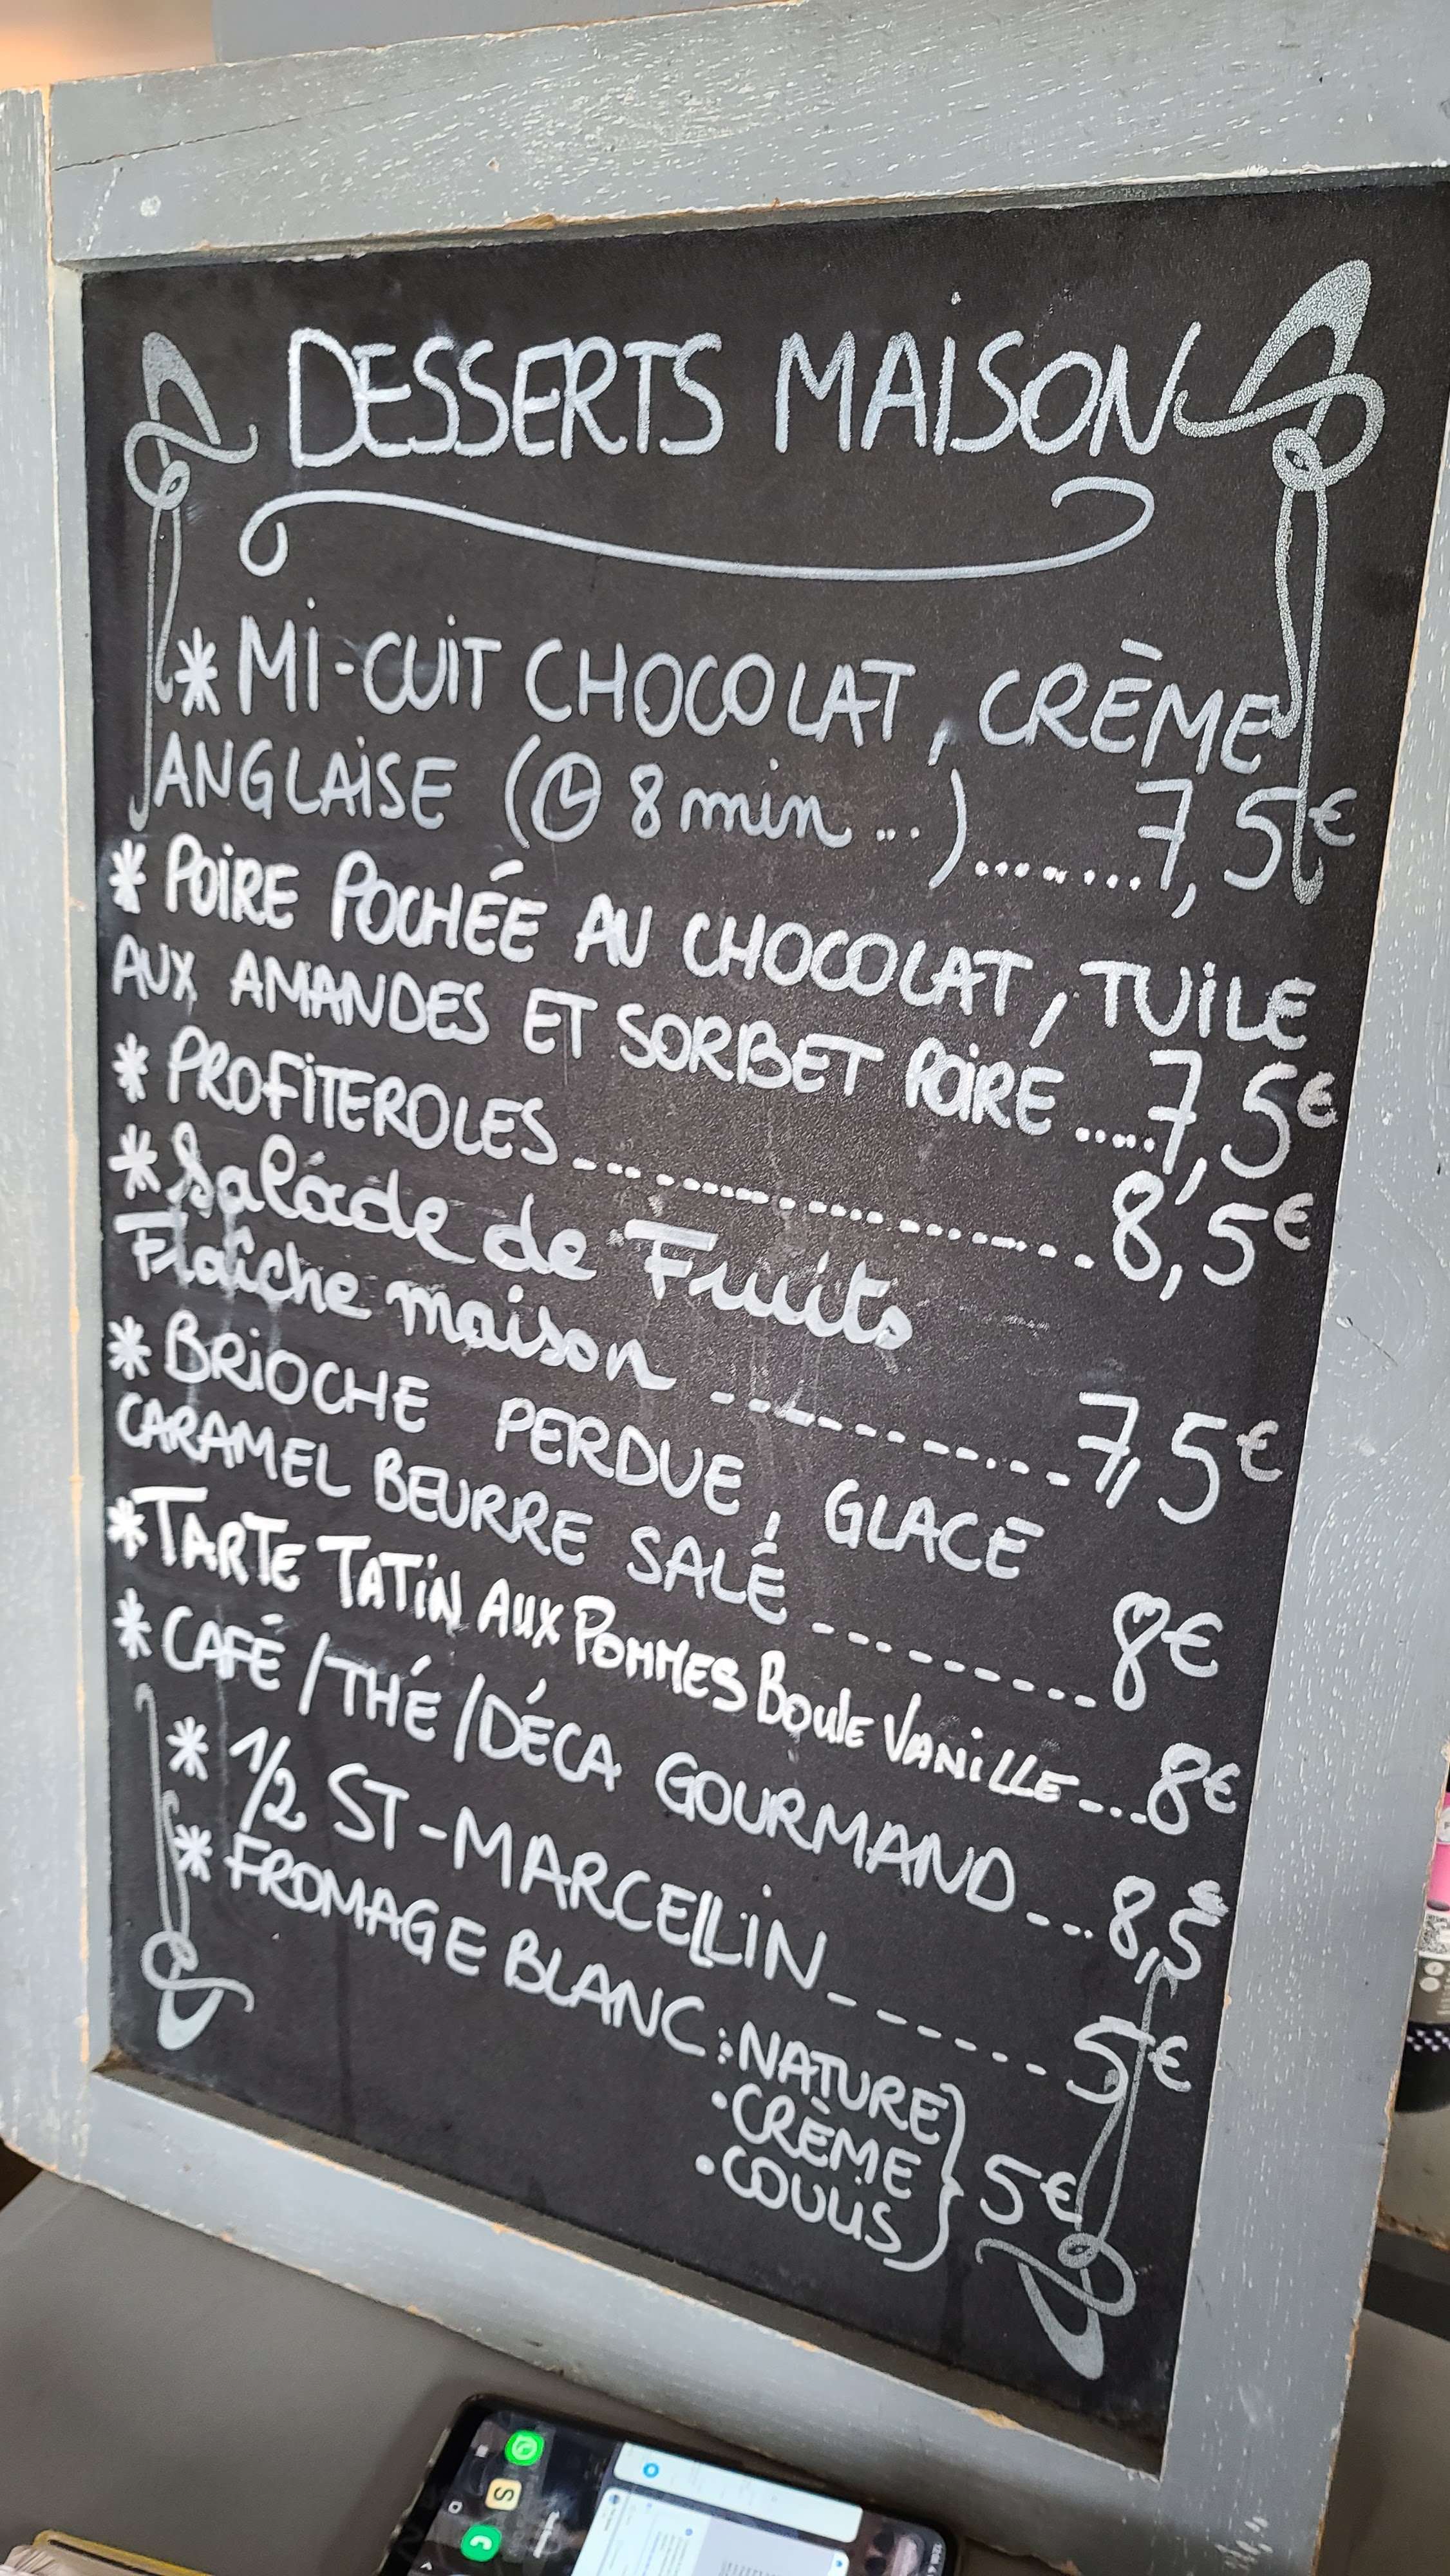 DESSERTS MAISON
* MI-CUIT CHOCOLAT, CRÈME
ANGLAISE (8 min...)........7,5€
* POIRE POCHÉE AU CHOCOLAT, TUILE
AUX AMANDES ET SORBET POIRE.....7,5€
* PROFITEROLES..............8,5€
* Salade de Fruits
Fraîche maison ............7,5€
* BRIOCHE PERDUE, GLACE
CARAMEL BEURRE SALÉ........8€
* TARTE TATIN AUX POMMES BOULE VANILLE...8€
* CAFÉ/THÉ/DÉCA GOURMAND...8,5€
* 1/2 ST-MARCELLIN.......5€
* FROMAGE BLANC : NATURE
• CRÈME } 5€
• COULIS